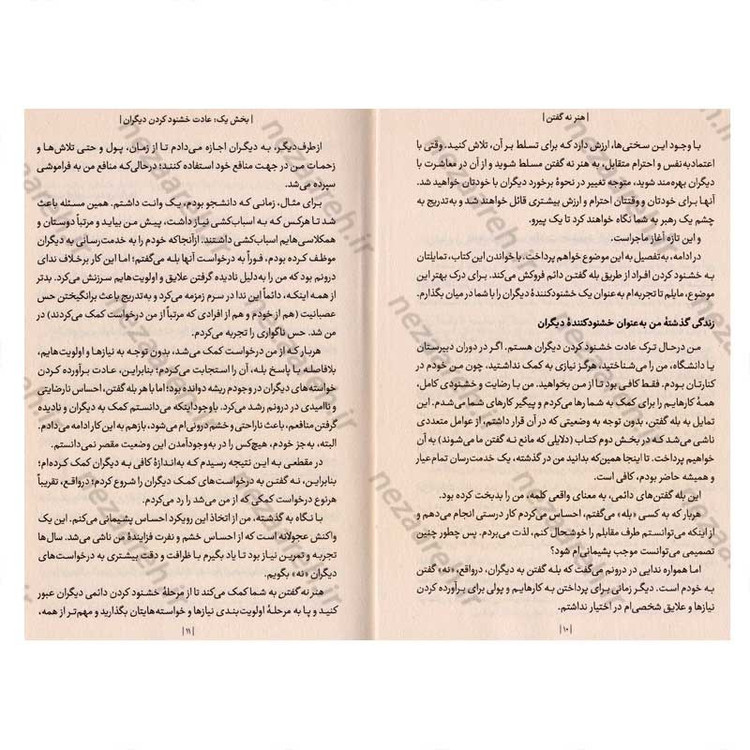 | هنر نه گفتن |
با وجود این سختی‌ها، ارزش دارد که برای تسلط بر آن، تلاش کنید. وقتی با
اعتمادبه‌نفس و احترام متقابل، به هنر نه گفتن مسلط شوید و از آن در معاشرت با
دیگران بهره‌مند شوید، متوجه تغییر در نحوهٔ برخورد دیگران با خودتان خواهید شد.
آنها برای خودتان و وقتتان احترام و ارزش بیشتری قائل خواهند شد و به‌تدریج به
چشم یک رهبر به شما نگاه خواهند کرد تا یک پیرو.
و این تازه آغاز ماجراست.
در ادامه، به‌تفصیل به این موضوع خواهم پرداخت. با خواندن این کتاب، تمایلتان
به خشنود کردن افراد از طریق بله گفتن دائم فروکش می‌کند. برای درک بهتر این
موضوع، مایلم تا تجربه‌ام به‌عنوان یک خشنودکنندهٔ دیگران را با شما در میان بگذارم.
زندگی گذشتهٔ من به‌عنوان خشنودکنندهٔ دیگران
من درحال ترک عادت خشنود کردن دیگران هستم. اگر در دوران دبیرستان
یا دانشگاه، من را می‌شناختید، هرگز نیازی به کمک نداشتید، چون من خودم در
کنارتان بودم. فقط کافی بود تا از من بخواهید. من با رضایت و خشنودی کامل،
همهٔ کارهایم را برای کمک به شما رها می‌کردم و پیگیر کارهای شما می‌شدم. این
تمایل به بله گفتن، بدون توجه به وضعیتی که در آن قرار داشتم، از عوامل متعددی
ناشی می‌شد که در بخش دوم کتاب (دلایلی که مانع نه گفتن ما می‌شوند) به آن
خواهیم پرداخت. تا اینجا همین‌که بدانید من در گذشته، یک خدمت‌رسان تمام‌عیار
و همیشه حاضر بودم، کافی است.
این بله گفتن‌های دائمی، به معنای واقعی کلمه، من را بدبخت کرده بود.
هربار که به کسی «بله» می‌گفتم، احساس می‌کردم کار درستی انجام می‌دهم و
از اینکه می‌توانستم طرف مقابلم را خوشحال کنم، لذت می‌بردم. پس چطور چنین
تصمیمی می‌توانست موجب پشیمانی‌ام شود؟
اما همواره ندایی در درونم می‌گفت که بله گفتن به دیگران، درواقع، «نه» گفتن
به خودم است. دیگر زمانی برای پرداختن به کارهایم و پولی برای برآورده کردن
نیازها و علایق شخصی‌ام در اختیار نداشتم.
| ۱۰ |
| بخش یک: عادت خشنود کردن دیگران |
ازطرف‌دیگر، به دیگران اجازه می‌دادم تا از زمان، پول و حتی تلاش‌ها و
زحمات من در جهت منافع خود استفاده کنند؛ درحالی‌که منافع من به فراموشی
سپرده می‌شد.
برای مثال، زمانی که دانشجو بودم، یک وانت داشتم. همین مسئله باعث
شد تا هرکس که به اسباب‌کشی نیاز داشت، پیش من بیاید و مرتباً دوستان و
همکلاسی‌هایم اسباب‌کشی داشتند. ازآنجاکه خودم را به خدمت‌رسانی به دیگران
موظف کرده بودم، فوراً به درخواست آنها بله می‌گفتم؛ اما این کار برخلاف ندای
درونم بود که من را به‌دلیل نادیده گرفتن علایق و اولویت‌هایم سرزنش می‌کرد. بدتر
از همه اینکه، دائماً این ندا در سرم زمزمه می‌کرد و به‌تدریج باعث برانگیختن حس
عصبانیت (هم از خودم و هم از افرادی که مرتباً از من درخواست کمک می‌کردند) در
من شد. حس ناگواری را تجربه می‌کردم.
هربار که از من درخواست کمک می‌شد، بدون توجه به نیازها و اولویت‌هایم،
بلافاصله با پاسخ بله، آن را استجابت می‌کردم؛ بنابراین، عادت برآورده کردن
خواسته‌های دیگران در وجودم ریشه دوانده بود؛ اما با هر بله گفتن، احساس نارضایتی
و ناامیدی در درونم رشد می‌کرد. باوجوداینکه می‌دانستم کمک به دیگران و نادیده
گرفتن منافعم، باعث ناراحتی و خشم درونی‌ام می‌شود، بازهم به این کار ادامه می‌دادم.
البته، به‌جز خودم، هیچ‌کس را در به‌وجودآمدن این وضعیت مقصر نمی‌دانستم.
در مقطعی به این نتیجه رسیدم که به‌اندازهٔ کافی به دیگران کمک کرده‌ام؛
بنابراین، نه گفتن به درخواست‌های کمک دیگران را شروع کردم؛ درواقع، تقریباً
هرنوع درخواست کمکی که از من می‌شد را رد می‌کردم.
با نگاه به گذشته، من از اتخاذ این رویکرد احساس پشیمانی می‌کنم. این یک
واکنش عجولانه است که از احساس خشم و نفرت فزایندهٔ من ناشی می‌شد. سال‌ها
تجربه و تمرین نیاز بود تا یاد بگیرم با ظرافت و دقت بیشتری به درخواست‌های
دیگران «نه» بگویم.
هنر نه گفتن به شما کمک می‌کند تا از مرحلهٔ خشنود کردن دائمی دیگران عبور
کنید و پا به مرحلهٔ اولویت‌بندی نیازها و خواسته‌هایتان بگذارید و مهم‌تر از همه،
| ۱۱ |
nezarreh.ir